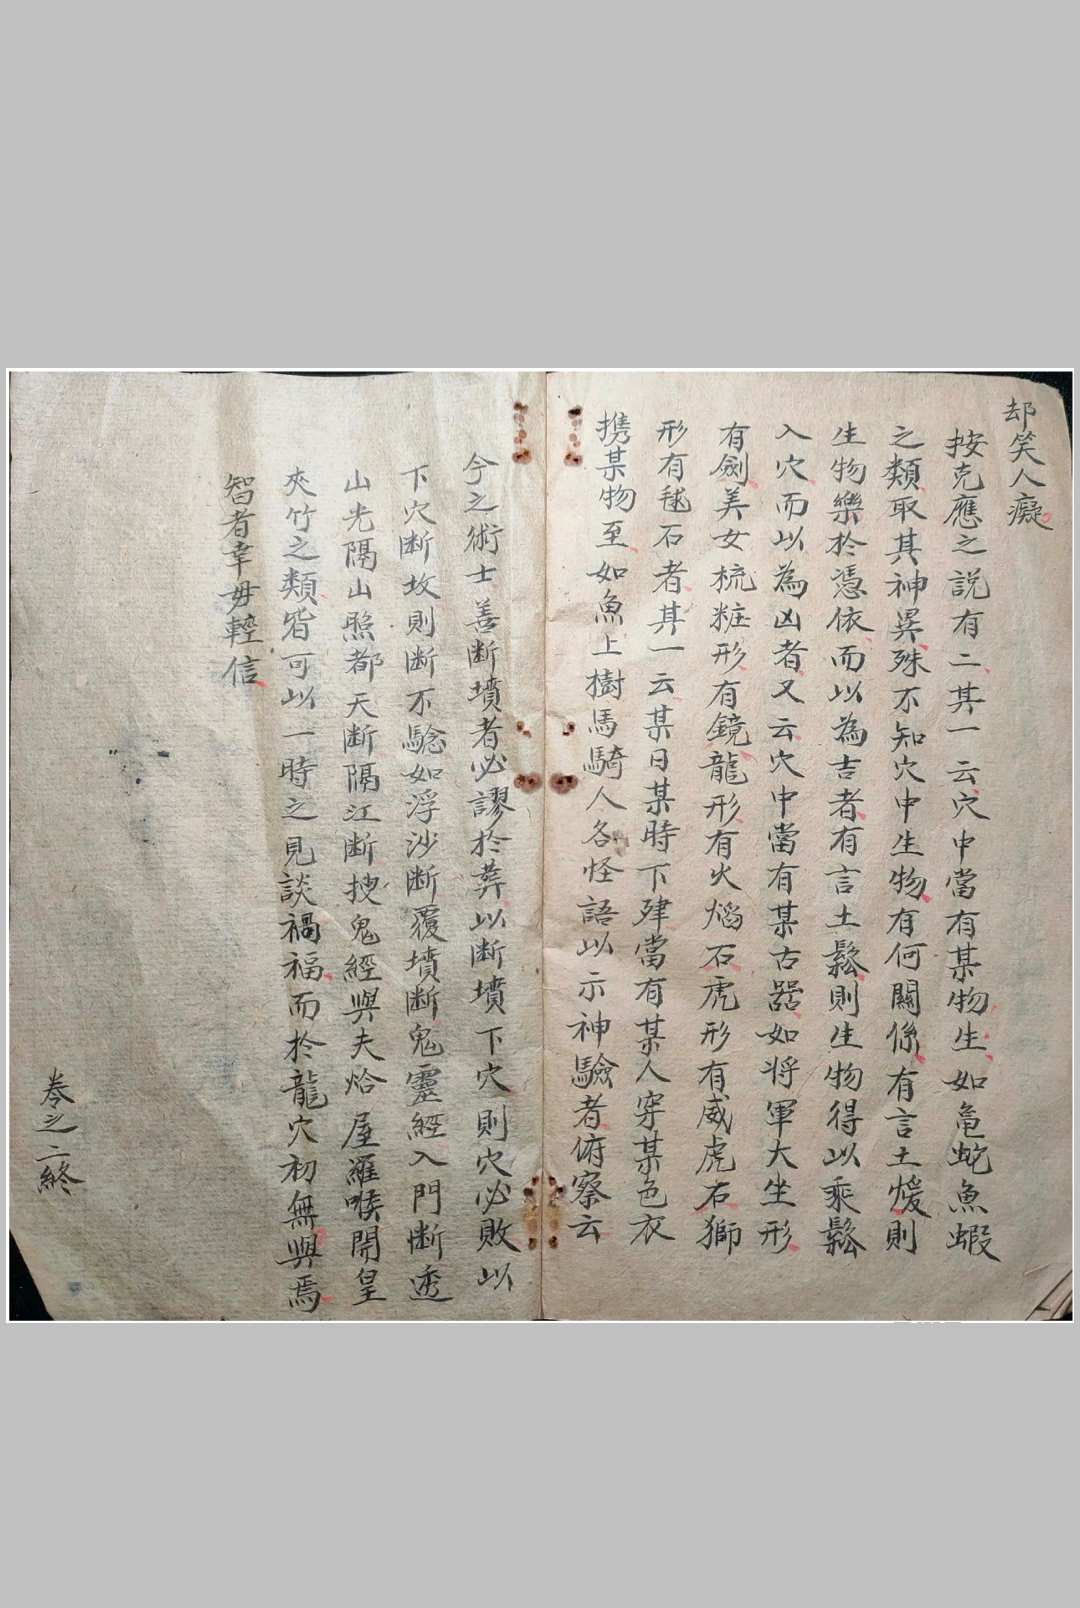 却笑人癡
按克應之説有二其一云穴中當有某物生如龜蛇魚蝦
之類取其神異殊不知穴中生物有何關係有言土煖則
生物樂於憑依而以為吉者有言土鬆則生物得以乘鬆
入穴而以為凶者又云穴中當有某古器如将軍大坐形
有劍美女梳粧形有鏡龍形有火熖石虎形有威虎石獅
形有毬石者其一云某日某時下肂當有某人穿某色衣
携某物至如魚上樹馬騎人各怪語以示神驗者俯察云
今之術士善断墳者必謬於葬以断墳下穴則穴必敗以
下穴断坟則断不騐如浮沙断覆墳断鬼靈經入門断透
山光隔山照都天断隔江断搜鬼經與夫烚屋羅喉開皇
夾竹之類皆可以一時之見談禍福而於龍穴初無與焉
智者幸毋輕信
卷之二終